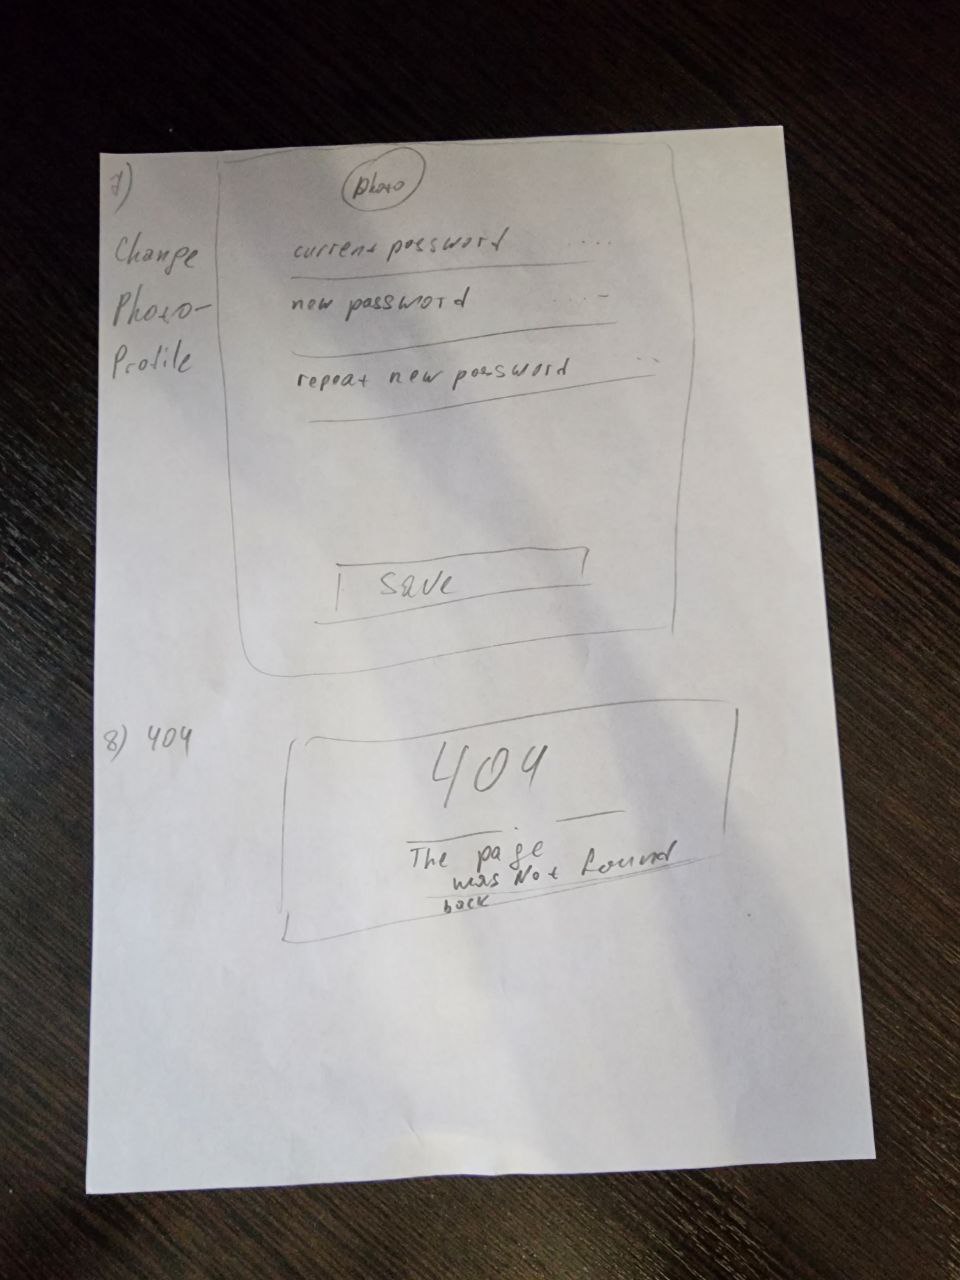 7)
Change
Photo-
Profile
photo
current password ....
new password ...-
repeat new password ..
save
8) 404
404
The page
was Not found
back